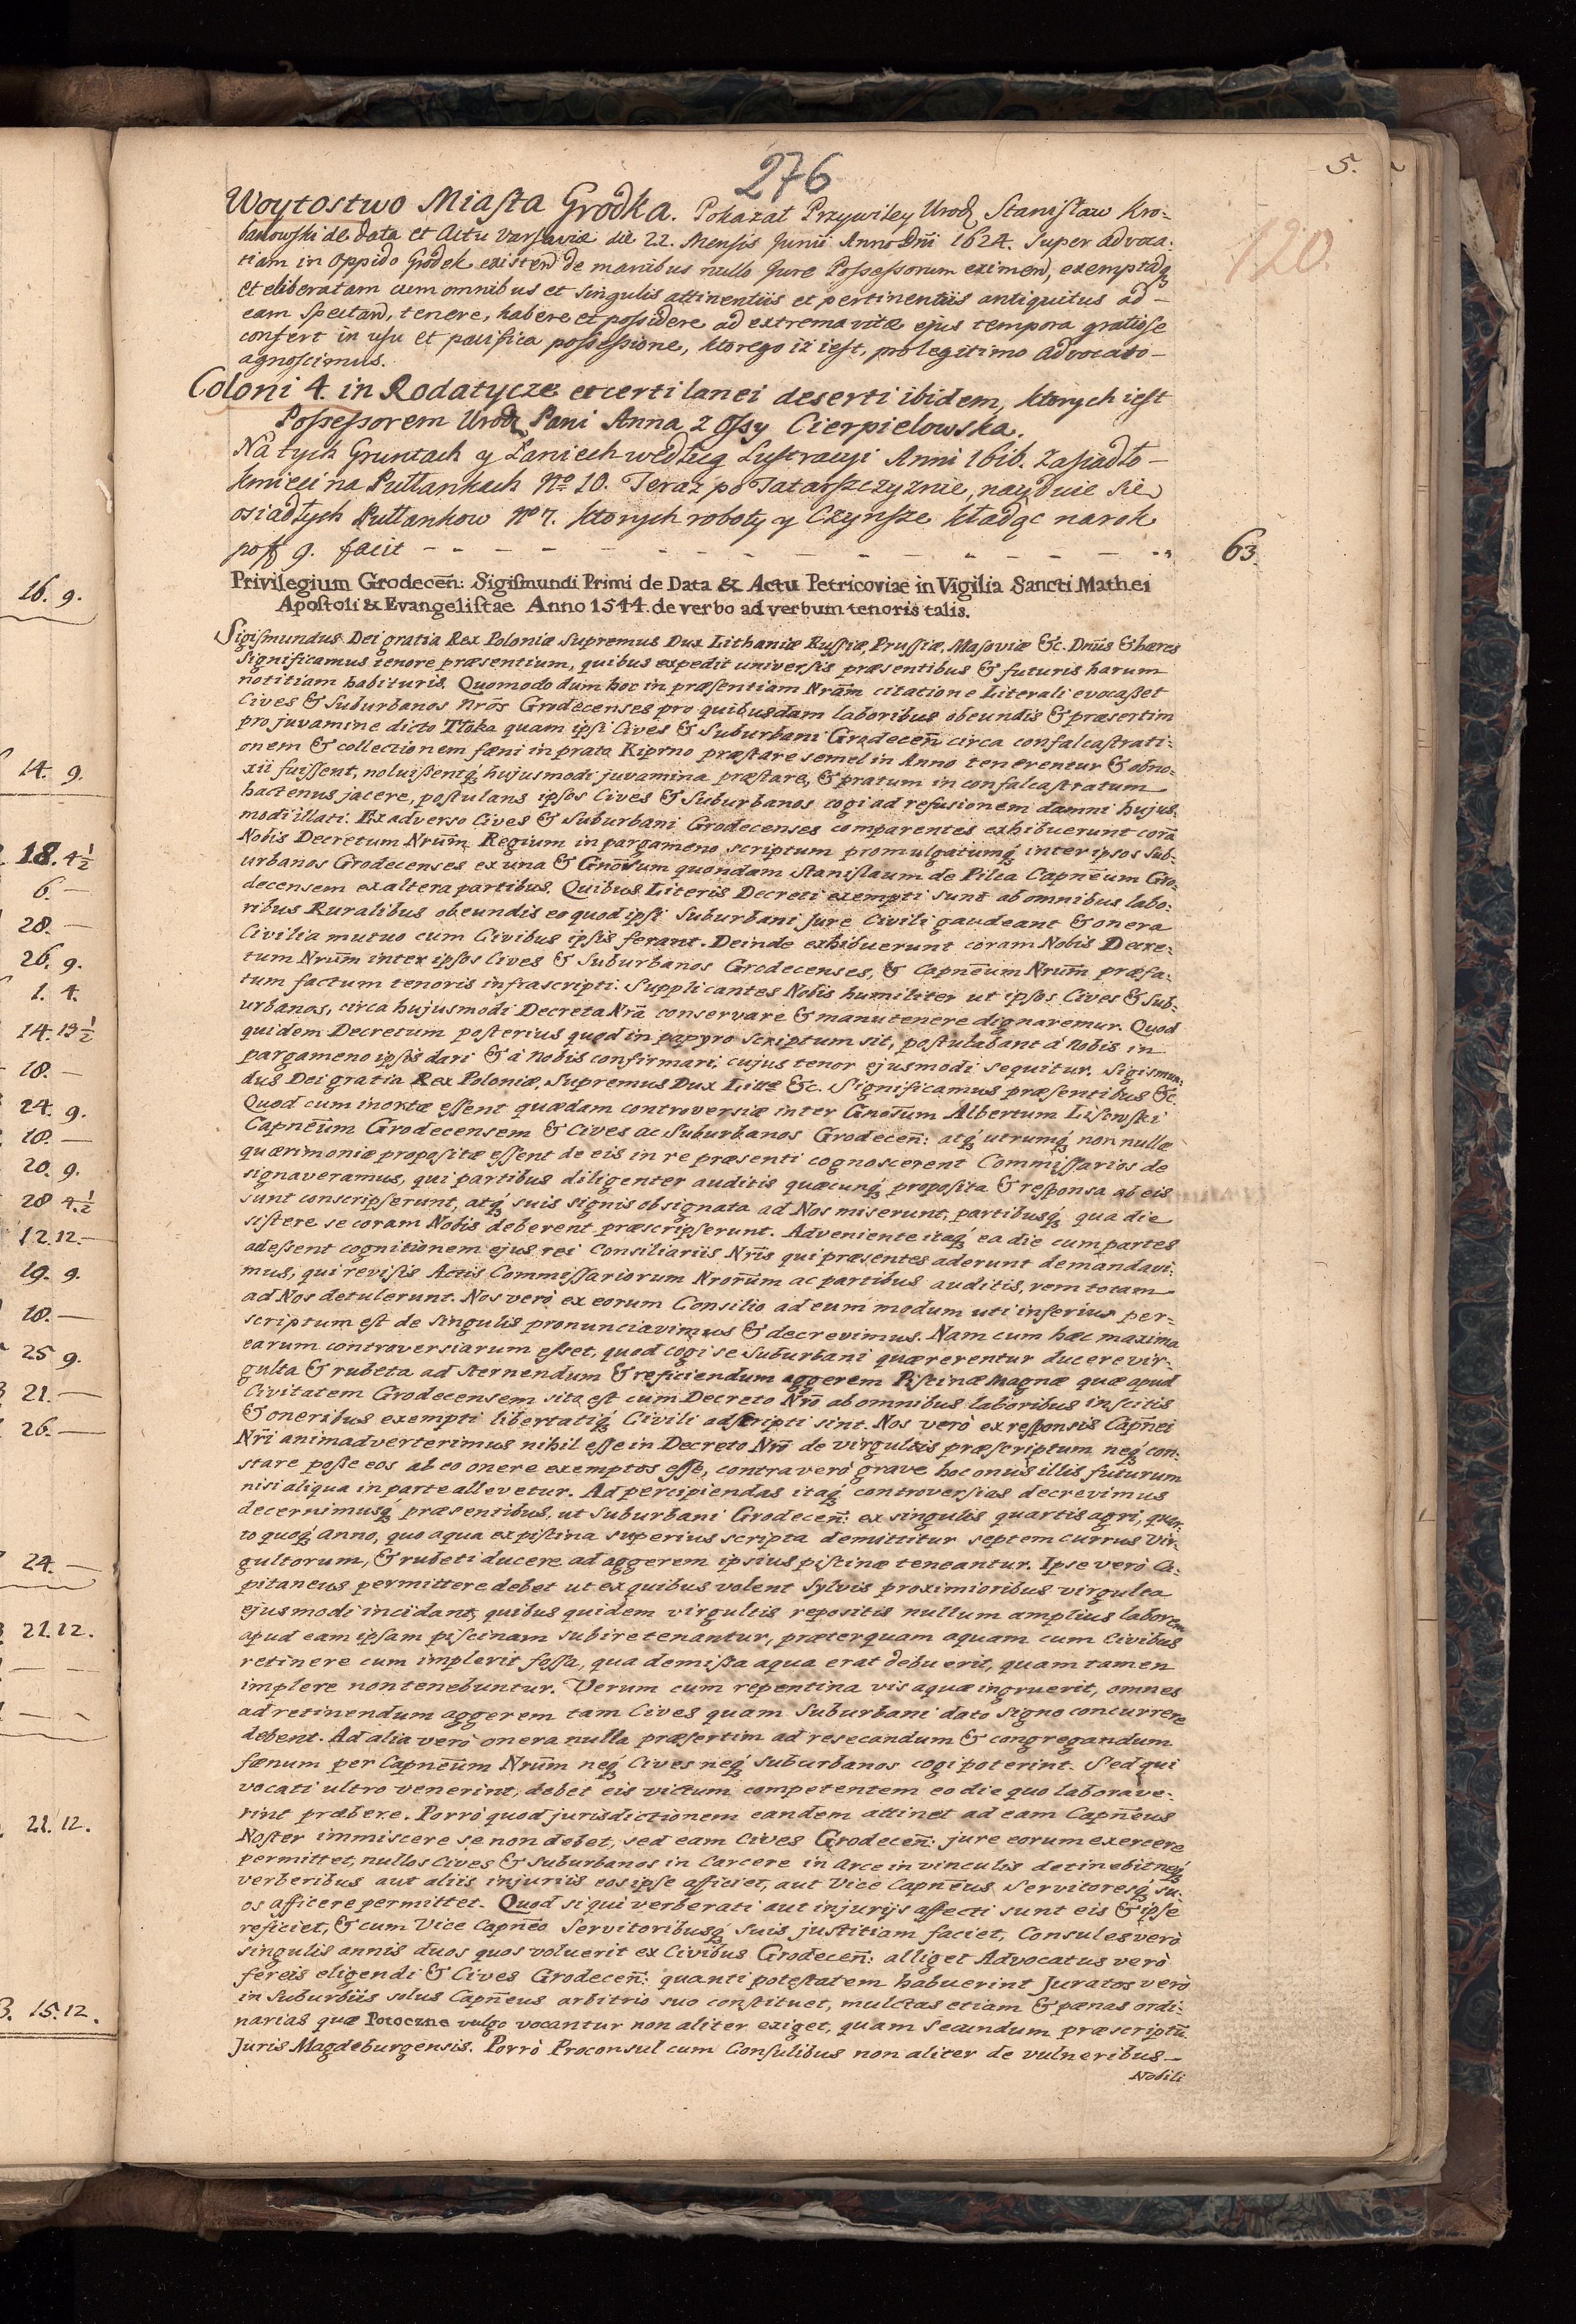 276
5.
120.
Woytostwo Miasta Grodka. Pokazał Przywiley Urodz Stanisław Kro-
banowski de Data et Actu Varsaviæ die 22. Mensis Junii Anno Dni 1624. Super Advoca-
tiam in Oppido Grodek existen̄ de manibus nullo Jure Possessorum eximen̄, exemptāq
et eliberatam cum omnibus et singulis attinentiis et pertinentiis antiquitus ad-
eam spectan̄, tenere, habere et possidere ad extrema vitæ ejus tempora gratiose
confert in usu et pacifica possessione, ktorego iż iest, pro legitimo Advocato-
agnoscimus.
Coloni 4. in Rodatycze et certi lanei deserti ibidem, ktorych iest
Possessorem Urodz Pani Anna z Ossy Cierpielowska.
Na tych Gruntach y Łaniech według Lustracyi Anni 1616. zasiadło-
kmieci na Pułłankach No 10. Teraz po Tatarszczyznie, nayduie się
osiadłych Pułłankow No 7. ktorych roboty y Czynsze kładąc na rok
po ff 9. facit - - - - - - - - - - - - - 63.
Privilegium Grodecen̄: Sigismundi Primi de Data & Actu Petricoviae in Vigilia Sancti Mathei
Apostoli & Evangelistae Anno 1544. de verbo ad verbum tenoris talis.
Sigismundus Dei gratia Rex Poloniæ Supremus Dux Lithaniæ Russiæ, Prussiæ, Masoviæ &c. Dnūs & hæres
Significamus tenore præsentium, quibus expedit universis præsentibus & futuris harum
notitiam habituris. Quomodo dum hoc in præsentiam Nrām citatione Literali evocasset
Cives & Suburbanos Nrōs Grodecenses pro quibusdam laboribus obeundis & præsertim
pro juvamine dicto Tłoka quam ipsi Cives & Suburbani Grodecen̄ circa confalcastrati-
onem & collectionem fæni in prata Kiprno præstare semel in Anno tenerentur & obno-
xii fuissent, noluissentq hujusmodi juvamina præstare, & pratum in confalcastratum
hactenus jacere, postulans ipsos Cives & Suburbanos cogi ad refusionem damni hujus-
modi illati. Ex adverso Cives & Suburbani Grodecenses comparentes exhibuerunt corā
Nobis Decretum Nrūm Regium in pargameno scriptum promulgatumq inter ipsos Sub-
urbanos Grodecenses ex una & Gnōsum quondam Stanislaum de Pilca Capnēum Gro-
decensem ex altera partibus. Quibus Literis Decreti exempti sunt ab omnibus labo-
ribus Ruralibus obeundis eo quod ipsi Suburbani Jure Civili gaudeant & onera
Civilia mutuo cum Civibus ipsis ferant. Deinde exhibuerunt coram Nobis Decre-
tum Nrūm inter ipsos Cives & Suburbanos Grodecenses, & Capnēum Nrūm præfa-
tum factum tenoris infrascripti. Supplicantes Nobis humiliter ut ipsos Cives & Sub-
urbanos, circa hujusmodi Decreta Nrā conservare & manutenere dignaremur. Quod
quidem Decretum posterius quod in papyro scriptum sit, postulabant à Nobis in
pargameno ipsis dari & à Nobis confirmari, cujus tenor ejusmodi sequitur. Sigismun-
dus Dei gratia Rex Poloniæ, Supremus Dux Littæ &c. Significamus præsentibus &c.
Quod cum inortæ essent quædam controversiæ inter Gnōsum Albertum Lisowski
Capnēum Grodecensem & Cives ac Suburbanos Grodecen̄: atq utrumq non nullæ
quærimoniæ propositæ essent de eis in re præsenti cognoscerent Commissarios de
signaveramus, qui partibus diligenter auditis quæcunq proposita & responsa ab eis
sunt conscripserunt, atq suis signis obsignata ad Nos miserunt, partibusq qua die
sistere se coram Nobis deberent præscripserunt. Adveniente itaq ea die cum partes
adessent cognitionem ejus rei Consiliariis Nrīs qui præsentes aderunt demandavi-
mus, qui revisis Actis Commissariorum Nrorūm ac partibus auditis, rem totam
ad Nos detulerunt. Nos verò ex eorum Consilio ad eum modum uti inferius per-
scriptum est de singulis pronunciavimus & decrevimus. Nam cum hæc maxima
earum controversiarum esset, quod cogi se Suburbani quærerentur ducere vir-
gulta & rubeta ad sternendum & reficiendum aggerem Piscinæ Magnæ quæ apud
Civitatem Grodecensem sita est cum Decreto Nrō ab omnibus laboribus inscitis
& oneribus exempti libertatiq Civili adscripti sint. Nos verò ex responsis Capnēi
Nrī animadverterimus nihil esse in Decreto Nrō de virgultis præscriptum neq con-
stare posse eos ab eo onere exemptos esse, contra verò grave hoc onus illis futurum
nisi aliqua in parte allevetur. Ad percipiendas itaq controversias decrevimus
decernimusq præsentibus, ut Suburbani Grodecen̄: ex singulis quartis agri, quar-
to quoq Anno, quo aqua ex piscina superius scripta demittitur septem currus vir-
gultorum, & rubeti ducere ad aggerem ipsius piscinæ teneantur. Ipse verò Ca-
pitaneus permittere debet ut ex quibus volent Sylvis proximioribus virgulta
ejusmodi incidant, quibus quidem virgultis repositis nullum amplius laborem
apud eam ipsam piscinam subire tenantur, præterquam aquam cum Civibus
retinere cum implerit fossa, qua demissa aqua erat debuerit, quam tamen
implere non tenebuntur. Verum cum repentina vis aquæ ingruerit, omnes
ad retinendum aggerem tam Cives quam Suburbani dato signo concurrere
debent. Ad alia verò onera nulla præsertim ad resecandum & congregandum
fænum per Capnēum Nrūm neq Cives neq Suburbanos cogi poterint. Sed qui
vocati ultro venerint, debet eis victum competentem eo die quo laborave-
rint præbere. Porrò quod jurisdictionem eandem attinet ad eam Capnēus
Noster immiscere se non debet, sed eam Cives Grodecen̄: jure eorum exercere
permittet, nullos Cives & Suburbanos in Carcere in Arce in vinculis detinebit neq
verberibus aut aliis injuriis eos ipse afficiet, aut Vice Capnēus Servitoresq su-
os afficere permittet. Quod si qui verberati aut injurijs affecti sunt eis & ipse
reficiet, & cum Vice Capnēo Servitoribusq suis justitiam faciet, Consules verò
singulis annis duos quos voluerit ex Civibus Grodecen̄: alliget Advocatus verò
fereis eligendi & Cives Grodecen̄: quanti potestatem habuerint Juratos verò
in Suburbiis solus Capnēus arbitrio suo constituet, mulctas etiam & pænas ordi-
narias quæ Potoczne vulgo vocantur non aliter exiget, quam secundum præscriptū
Juris Magdeburgensis. Porrò Proconsul cum Consulibus non aliter de vulneribus-
Nobili
16. 9.
14. 9.
18. 4½
6. -
28. -
26. 9.
1. 4.
14. 13½
18. -
24. 9.
10. -
20. 9.
28 4.½
12. 12. -
19. 9.
10. -
25 9.
21. -
26. -
24. -
21. 12.
21. 12.
3. 15. 12.